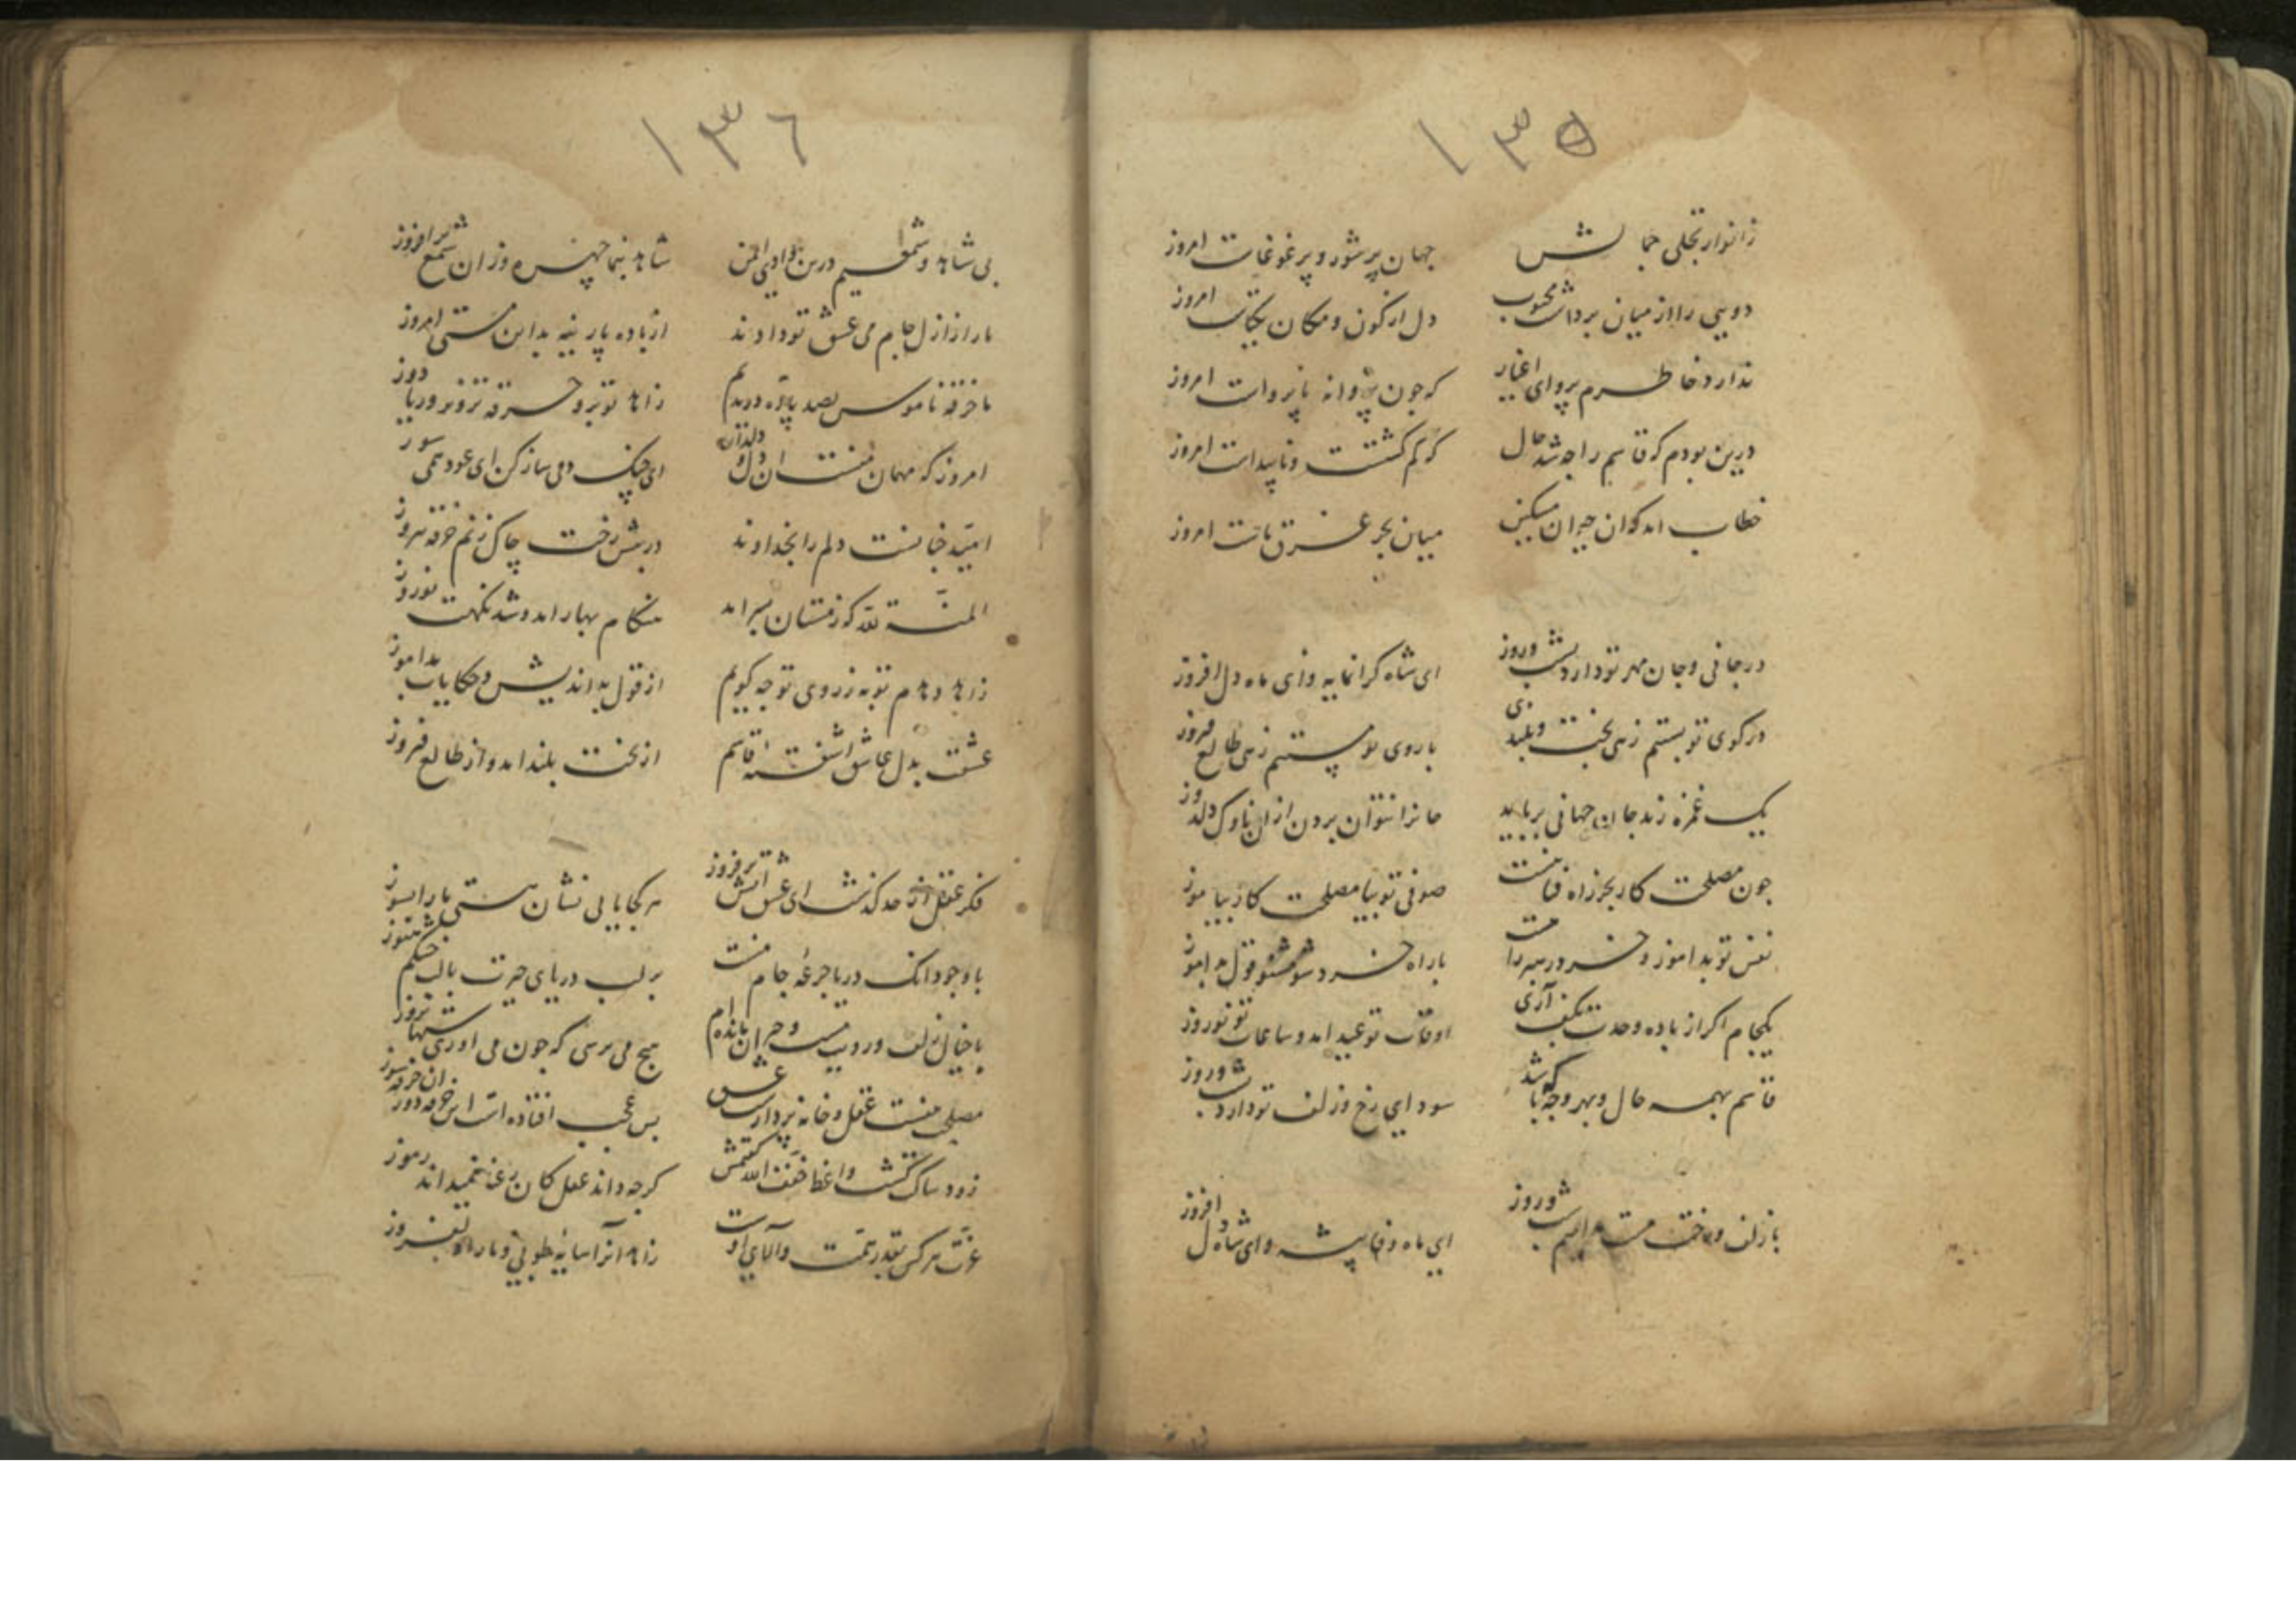 ١٣٥
ز انوار تجلی جمالش جهان پر شور و پر غوغاست امروز
دویی را از میان برداشت محبوب دل از کون و مکان یکتاست امروز
ندارد خاطرم پروای اغیار که جون پروانه ناپرواست امروز
درین بودم که قاسم را جه شد حال که کم کشتست و ناپیداست امروز
خطاب امد که ان حیران مسکین میان بحر غرق ماست امروز
در جانی و جان مهر تو دارد شب و روز ای شاه کرانمایه و ای ماه دل افروز
در کوی تو پستیم زهی بخت و بلندی با روی تو مستیم زهی طالع فیروز
یک غمزه زند جان جهانی برباید جانرا نتوان بردن ازان ناوک دلدوز
جون مصلحت کار بجز راه فنا نیست صوفی تو بیا مصلحت کار بیاموز
نفس تو بد اموز و خرد رهبر راهست با راه خرد شو مشنو قول بد اموز
یکجام اکر از باده وحدت بکف آری اوقات تو عید امد و ساعات تو نوروز
قاسم بهمه حال و بهر وجه که باشد سودای رخ و زلف تو دارد شب و روز
با زلف و رخت مست مدامیم شب و روز ای ماه وفا پیشه و ای شاه دل افروز
١٣٦
بی شاهد و شمعیم درین وادی ایمن شاهد بنما جهره وزان شمع برافروز
ما را ز ازل جام می عشق تو دادند از باده پارینه بد این مستی امروز
ما خرقه ناموس بصد پاره دریدیم زاهد تو برو خرقه تزویر و ریا دوز
امروز که مهمان منست ان دل و دلدار ای جنک دمی ساز کن ای عود همی سوز
امید جنانست دلم را بخداوند در پیش رخت جاک زنم خرقه هر روز
المنة لله که زمستان بسر امد هنکام بهار امد و شد نکهت نوروز
زاهد دهدم توبه ز روی تو جه کویم از قول بد اندیش و حکایات بد اموز
عشقت بدل عاشق اشفته قاسم از بخت بلند امد و از طالع فیروز
فکر عقل از حد کذشت ای عشق اتش برفروز هر کجا یابی نشان هستی ما را بسوز
با وجود انک دریا جرعه جام منست بر لب دریای حیرت با لب خشکم هنوز
با خیال زلف و رویت مست و حیران مانده ام هیج می پرسی که جون می اوری شبها بروز
مصلح منست عقل و خانه پردازست عشق بس عجب افتاده است این خرقه دوز ان خرقه سوز
زود ساکت کشت واعظ خفف الله کفتمش کرجه داند عقل کان رعنا نمیداند رموز
عزت هر کس بقدر همت والای اوست زاهد انرا سایه طوبی و ما را دلفروز